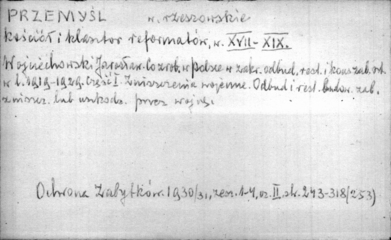 PRZEMYŚL w. rzeszowskie
kościół i klasztor reformatów, w. XVII-XIX.
Wojciechowski Jarosław. Co zrob. w Polsce w zakr. odbud., rest. i kons. zab. arch.
w l. 1919-1929. Część I. Zniszczenia wojenne. Odbud. i rest. budow. zab.
zniszcz. lub uszkodz. przez wojnę.
Ochrona Zabytków. 1930/31, zesz. 1-4, cz. II. str. 243-318/253)